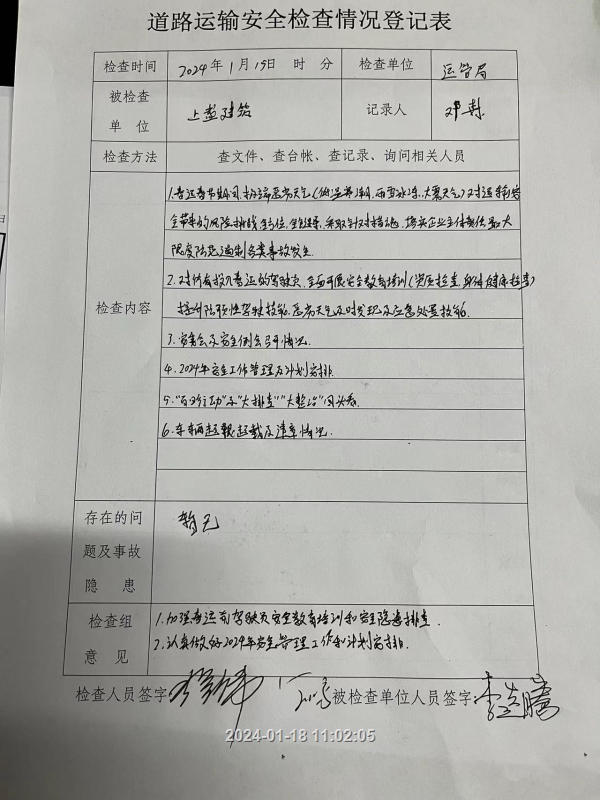 道路运输安全检查情况登记表
检查时间 2024年1月15日 时 分 检查单位 运管局
被检查单位 上 建筑 记录人 邓
检查方法 查文件、查台帐、查记录、询问相关人员
检查内容
1.春运春节期间,极端恶劣天气(雨雪冰冻、大雾天气)对运输安
全带来的风险挑战 采取针对措施,落实企业主体责任最大
限度防范遏制各类事故发生.
2.对所有投入春运的驾驶员,全面开展安全教育培训(资质检查,身体健康检查)
提升防御性驾驶技能,恶劣天气及时发现及应急处置技能.
3.安委会及安全例会召开情况.
4.2024年安全工作管理及计划安排.
5."百日行动"及"大排查""大整治"回头看.
6.车辆超载及违章情况.
存在的问题及事故隐患 暂无
检查组意见
1.加强春运前驾驶员安全教育培训和安全隐患排查.
2.认真做好2024年安全管理工作和计划安排.
检查人员签字: 被检查单位人员签字: 李 腾
2024-01-18 11:02:05